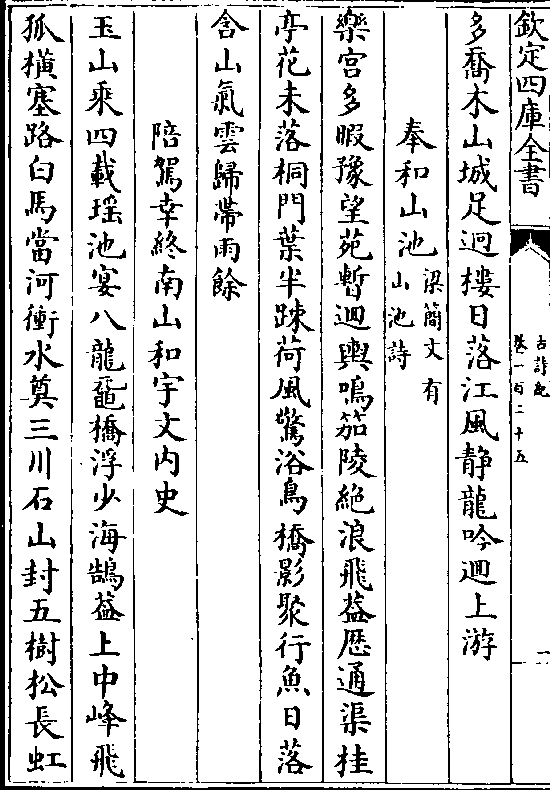 欽定四庫全書
古詩紀
卷一百二十五
多喬木山城足迥樓日落江風静龍吟迴上游
奉和山池
梁簡文有
山池詩
樂宫多暇豫望苑暫迴輿鳴笳陵絶浪飛葢厯通渠桂
亭花未落桐門葉半踈荷風驚浴鳥橋影聚行魚日落
含山氣雲歸帶雨餘
陪駕幸終南山和宇文内史
玉山乘四載瑶池宴八龍鼋橋浮少海鵠葢上中峰飛
狐横塞路白馬當河衝水奠三川石山封五樹松長虹